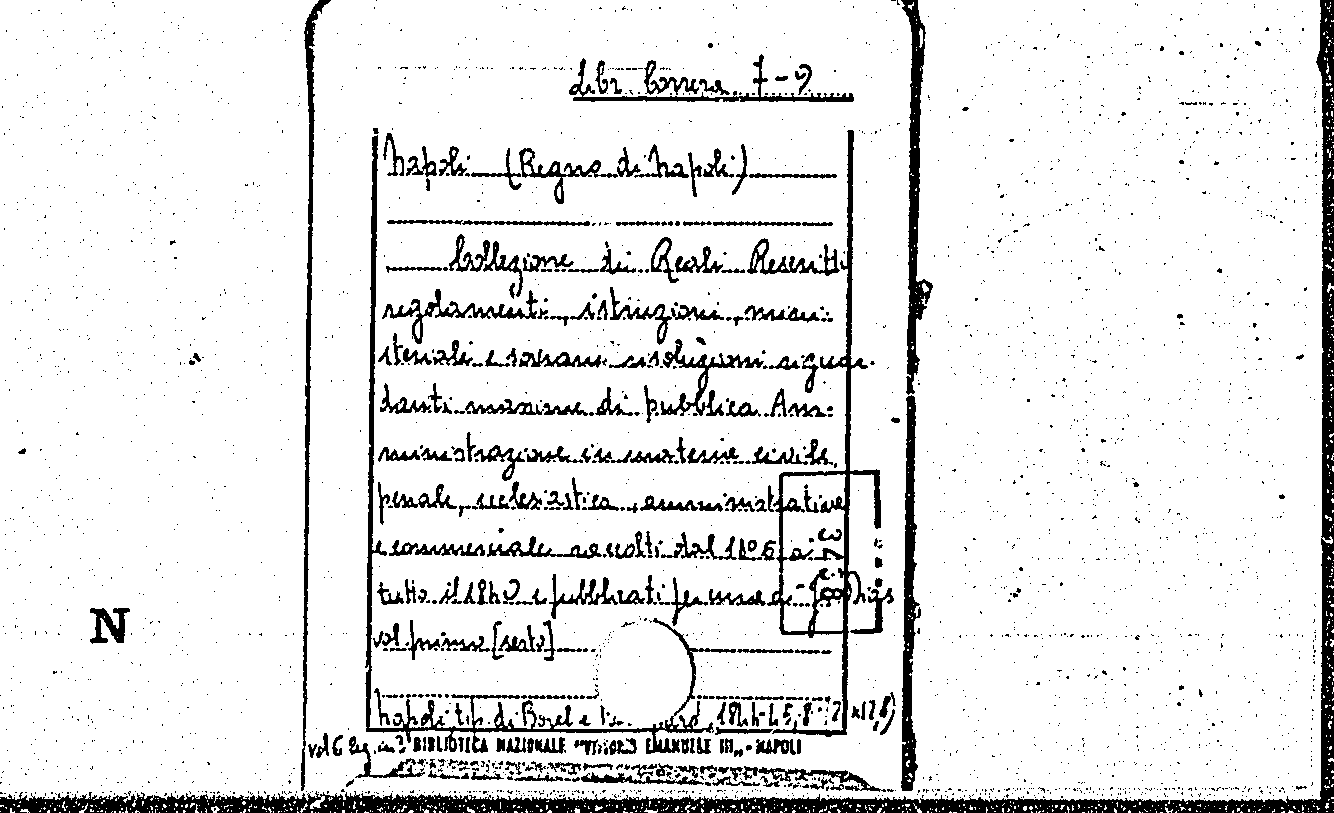 Libr. Correra 7-9
Napoli (Regno di Napoli)
Collezione di Reali Rescritti
regolamenti, istruzioni, mini:
steriali e sovrane risoluzioni riguar-
danti massime di pubblica Am:
ministrazione in materie civile,
penale, ecclesiastica, amministrativa
e commerciale raccolti dal 1806 a
tutto il 1840 e pubblicati per cura di
vol. primo [sesto]
N
Napoli tip. di Borel e 1844-45, 8°
vol 6 leg. in 3 BIBLIOTECA NAZIONALE "VITTORIO EMANUELE III" - NAPOLI